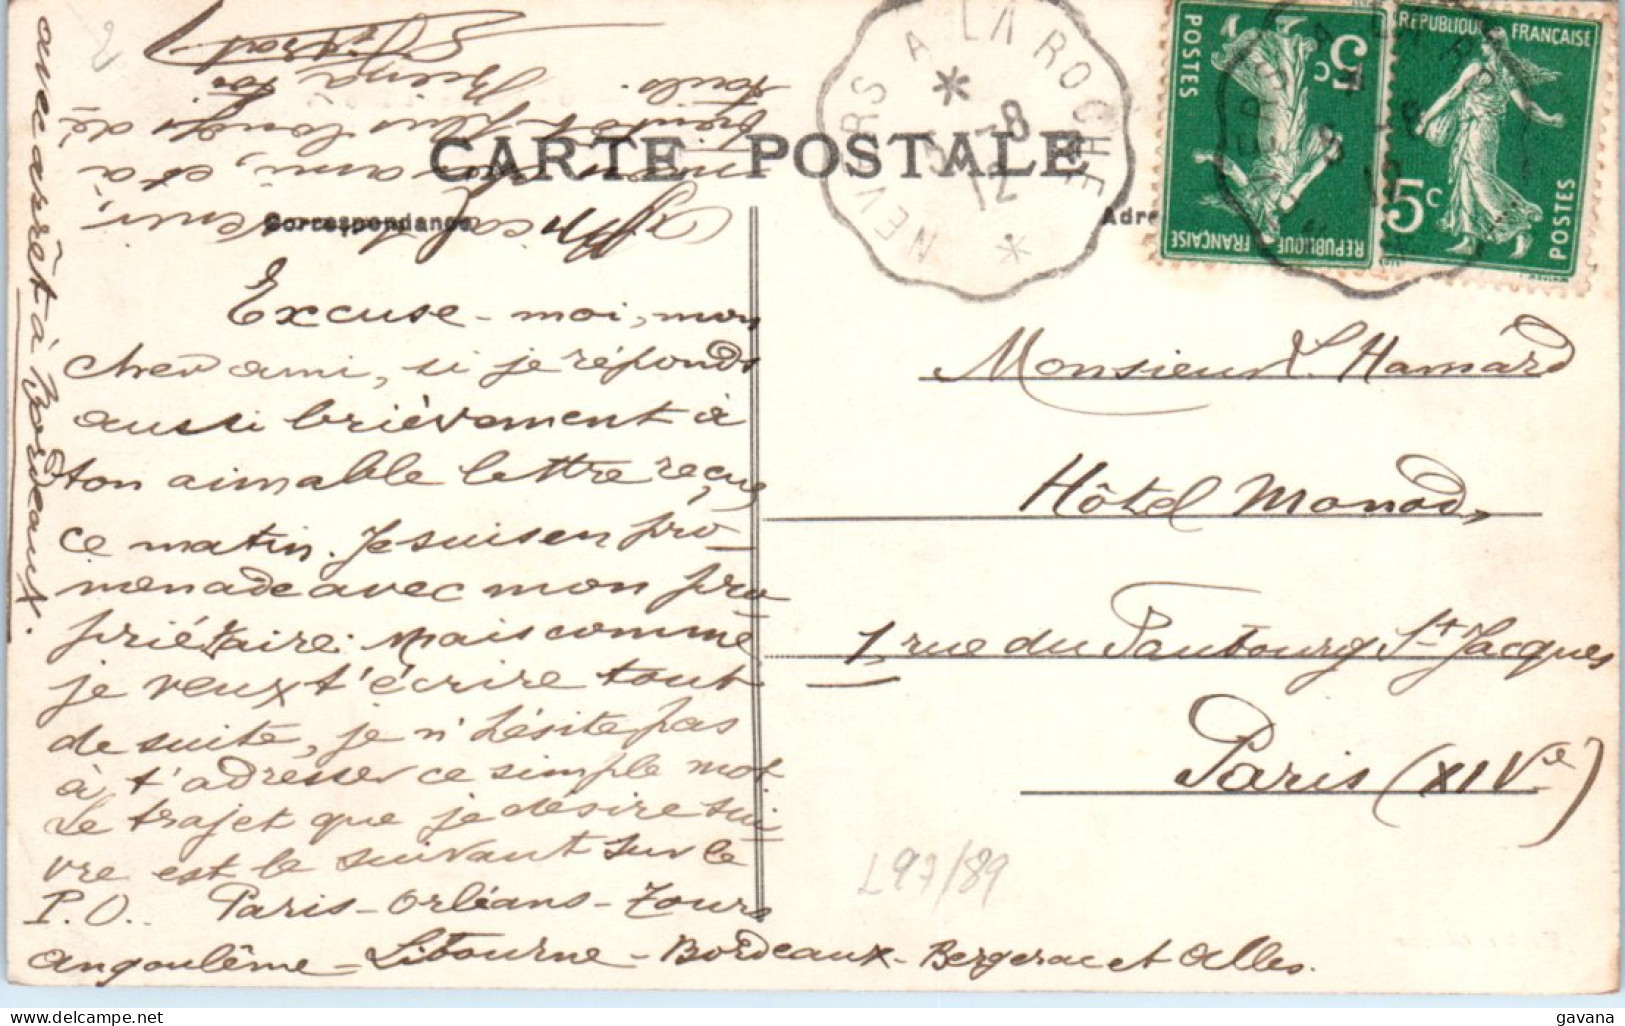 CARTE POSTALE
Correspondance
Excuse-moi, mon
cher ami, si je réponds
aussi brièvement à
ton aimable lettre reçue
ce matin. Je suis en pro-
menade avec mon pro-
priétaire. Mais comme
je veux t'écrire tout
de suite, je n'hésite pas
à t'adresser ce simple mot
Le trajet que je désire sui-
vre est le suivant sur le
P.O. Paris-Orléans-Tours
Angoulême-Libourne-Bordeaux-Bergerac et Alles.
avec arrêt à Bordeaux.
mon ami, et à
bientôt plus longs dé
tails.
NEVERS A LA ROCHE
5 -8
12
POSTES
5c
REPUBLIQUE FRANÇAISE
REPUBLIQUE FRANÇAISE
5c
POSTES
Monsieur L. Hamard
Hôtel Monod,
1 rue du Faubourg St Jacques
Paris (XIVe)
L97/89
gavana